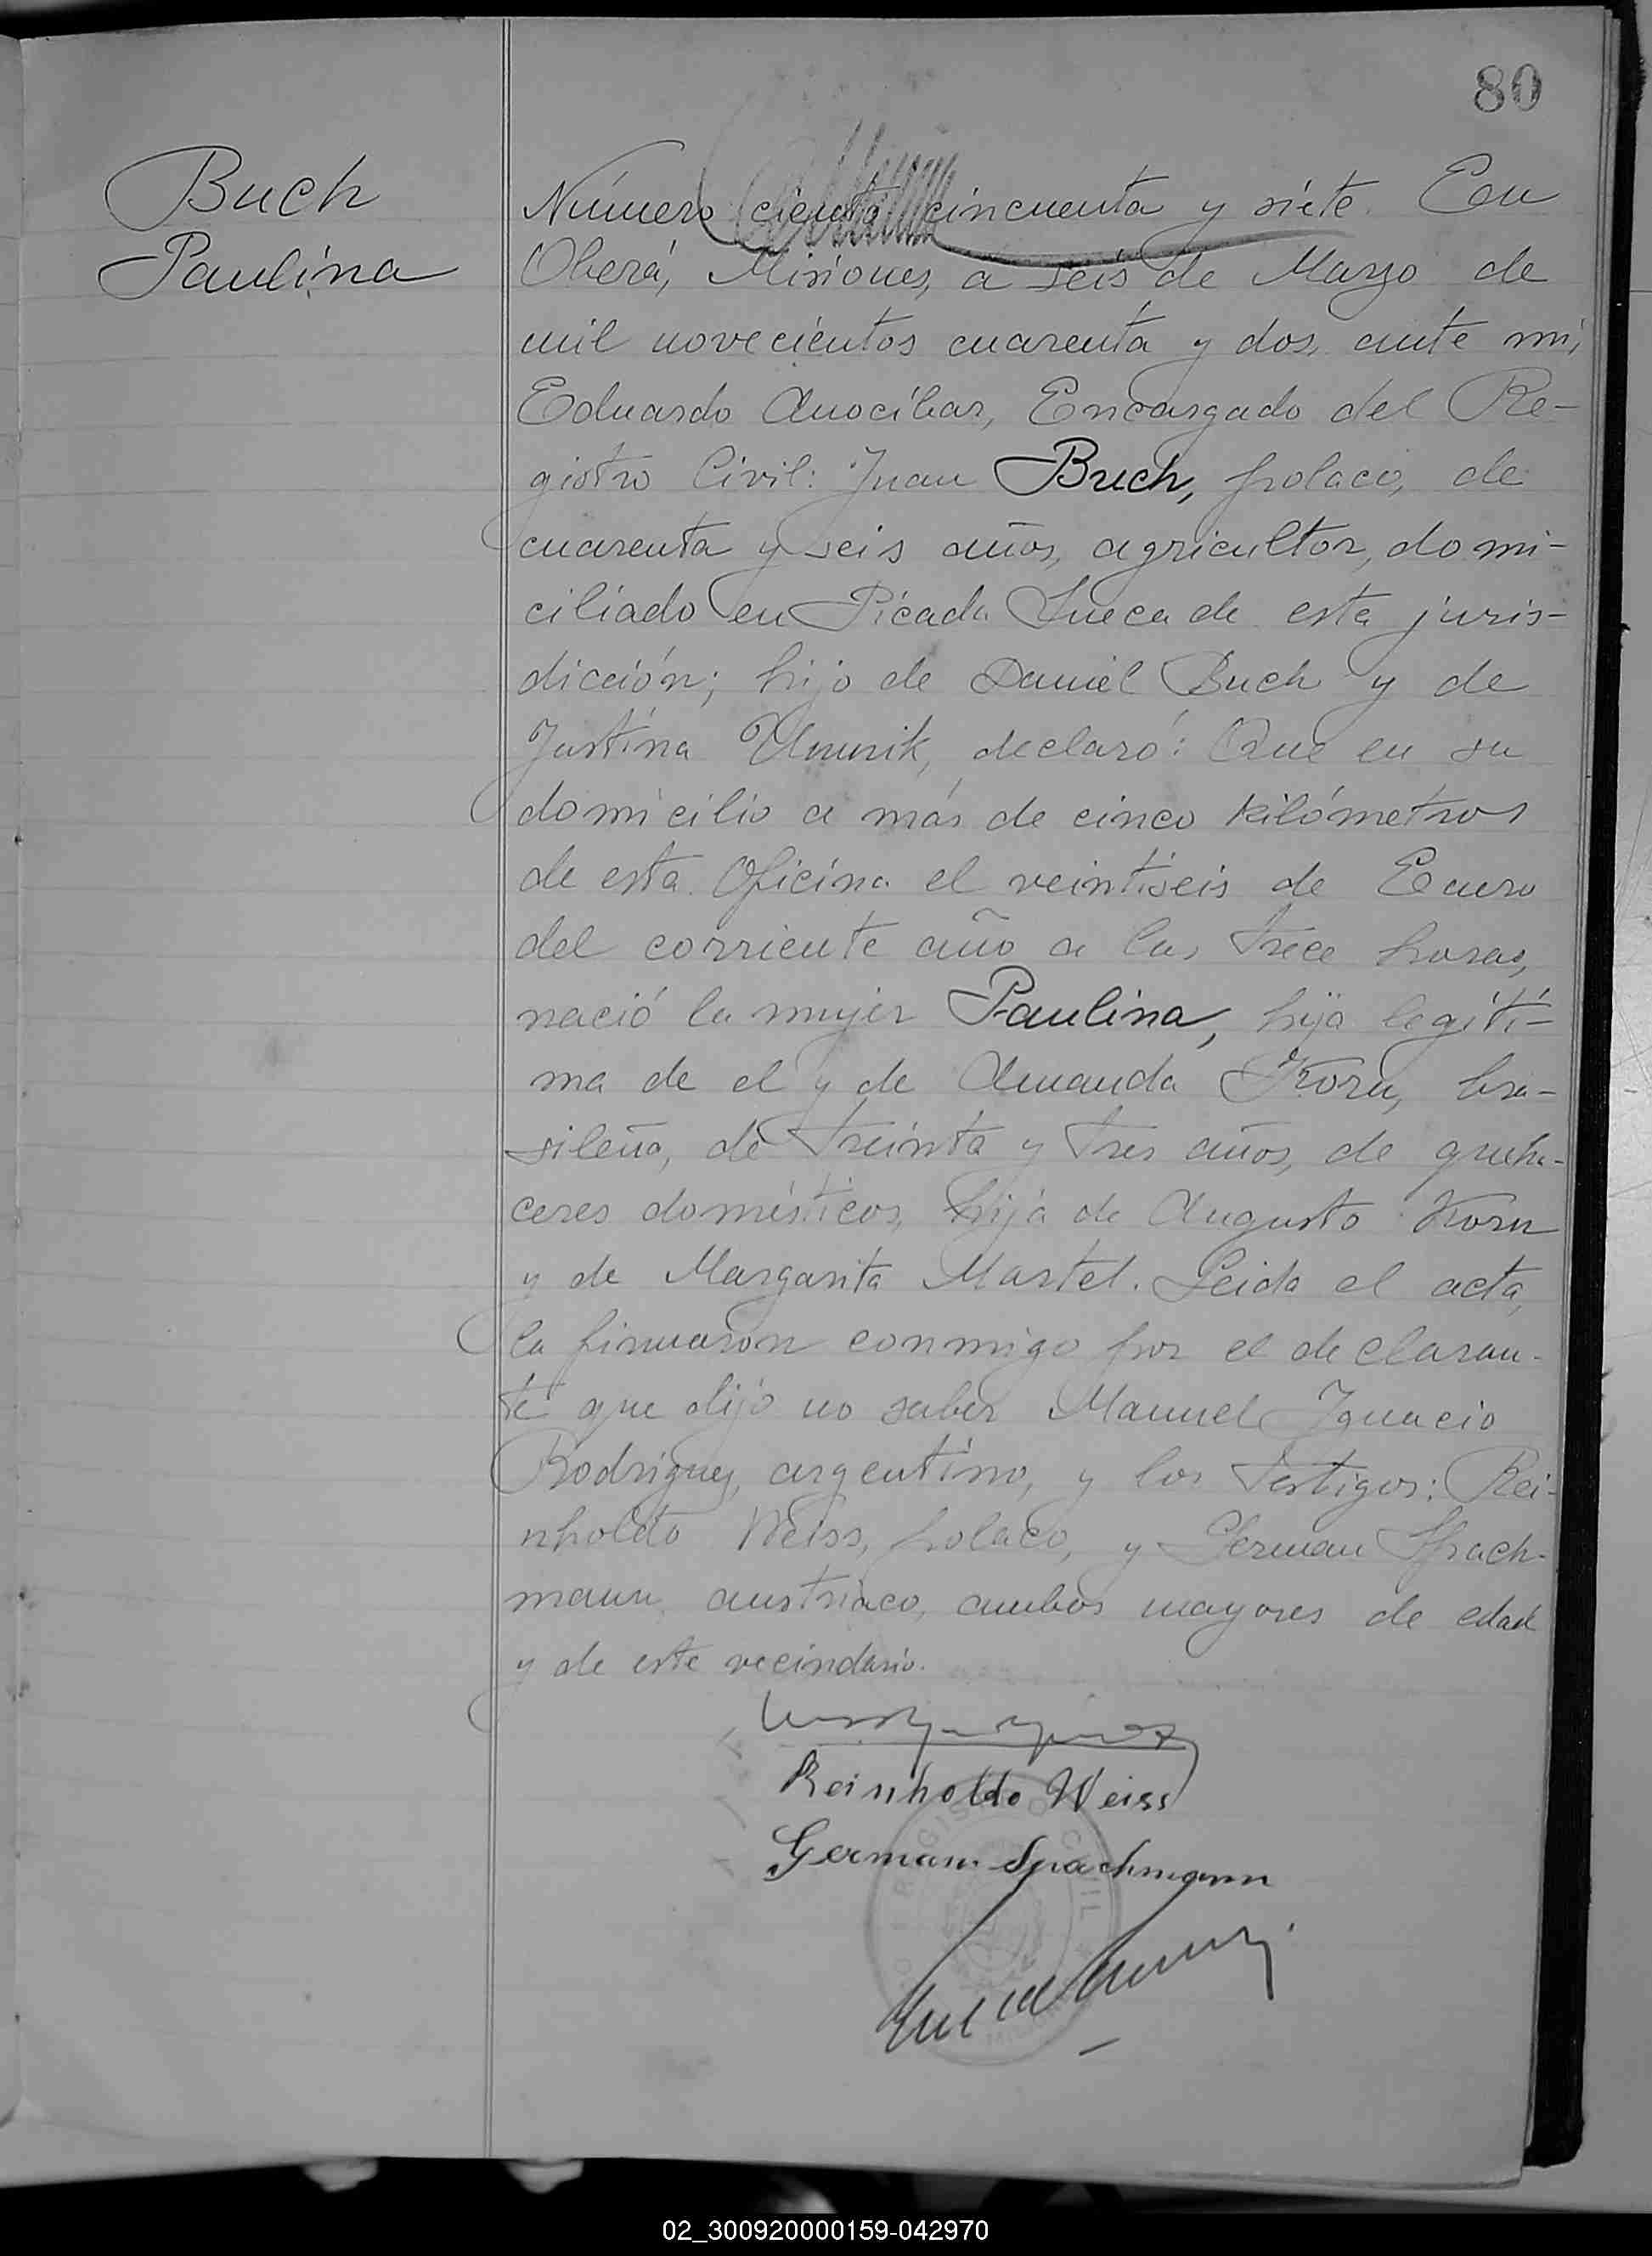 80
Buch
Paulina
Número ciento cincuenta y siete. En
Oberá, Misiones, a seis de Marzo de
mil novecientos cuarenta y dos, ante mí,
Eduardo Anocíbar, Encargado del Re-
gistro Civil: Juan Buch, polaco, de
cuarenta y seis años, agricultor, domi-
ciliado en Picada Sueca de esta juris-
dicción; hijo de Daniel Buch y de
Justina declaró: Que en su
domicilio a más de cinco kilómetros
de esta Oficina el veintiseis de Enero
del corriente año a las trece horas,
nació la mujer Paulina, hija legíti-
ma de el y de Amanda Korn, bra-
sileña, de treinta y tres años, de queha-
ceres domésticos, hija de Augusto Korn
y de Margarita Martel. Leida el acta,
la firmaron conmigo por el declaran-
te que dijo no saber Manuel Ignacio
Rodriguez, argentino, y los testigos: Rei-
nholdo Weiss, polaco, y German Spach-
mann, austriaco, ambos mayores de edad
y de este vecindario.
Reinholdo Weiss
German Spachmann
REGISTRO CIVIL
02_300920000159-042970